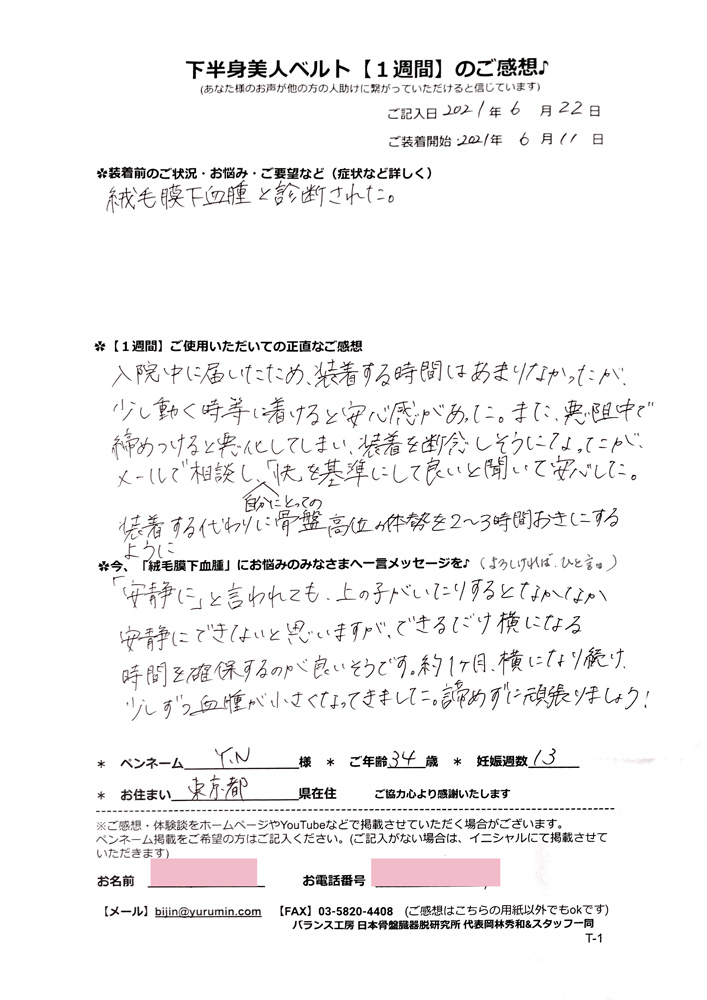 下半身美人ベルト【１週間】のご感想♪
(あなた様のお声が他の方の人助けに繋がっていただけると信じています)
ご記入日 2021年 6 月 22 日
ご装着開始 2021年 6 月 11 日
✿装着前のご状況・お悩み・ご要望など（症状など詳しく）
絨毛膜下血腫と診断された。
✿【１週間】ご使用いただいての正直なご感想
入院中に届いたため、装着する時間はあまりなかったが、
少し動く時等に着けると安心感があった。また、悪阻中で
締めつけると悪化してしまい、装着を断念しそうになったが、
メールで相談し、「快」を基準にして良いと聞いて安心した。
自分にとっての
装着する代わりに骨盤高位の体勢を2〜3時間おきにする
ように
✿今、「絨毛膜下血腫」にお悩みのみなさまへ一言メッセージを♪（よろしければ、ひと言）
「安静に」と言われても、上の子がいたりするとなかなか
安静にできないと思いますが、できるだけ横になる
時間を確保するのが良いそうです。約1ヶ月、横になり続け、
少しずつ血腫が小さくなってきました。諦めずに頑張りましょう！
＊ ペンネーム Y.N 様 ＊ ご年齢 34 歳 ＊ 妊娠週数 13
＊ お住まい 東京都 県在住 ご協力心より感謝いたします
※ご感想・体験談をホームページやYouTubeなどで掲載させていただく場合がございます。
ペンネーム掲載をご希望の方はご記入ください。(ご記入がない場合は、イニシャルにて掲載させて
いただきます)
お名前 お電話番号
【メール】bijin@yurumin.com 【FAX】03-5820-4408 （ご感想はこちらの用紙以外でもokです）
バランス工房 日本骨盤臓器脱研究所 代表岡林秀和&スタッフ一同
T-1